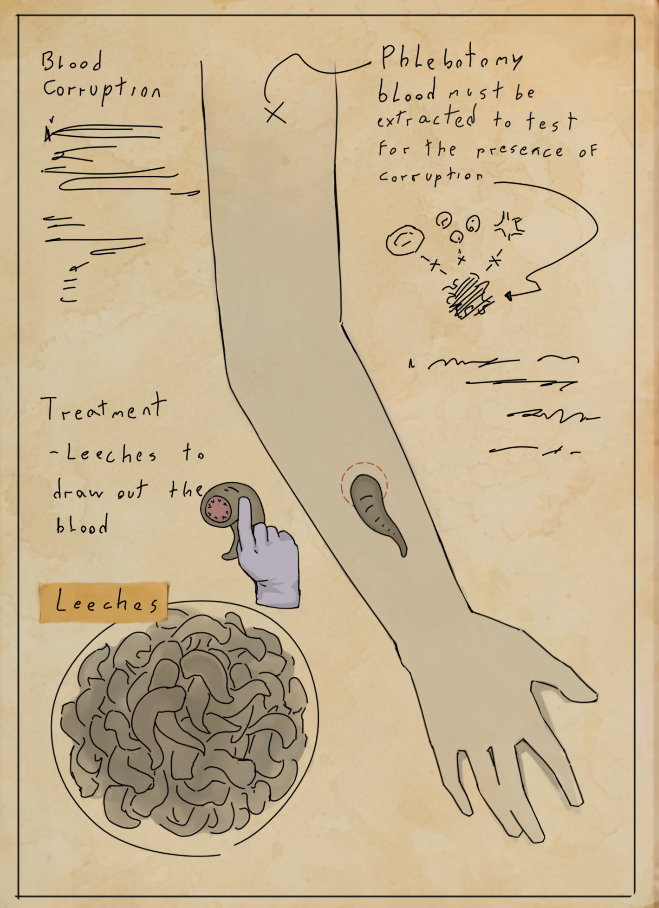 Blood
Corruption
Phlebotomy
blood must be
extracted to test
for the presence of
corruption
Treatment
-Leeches to
draw out the
blood
Leeches